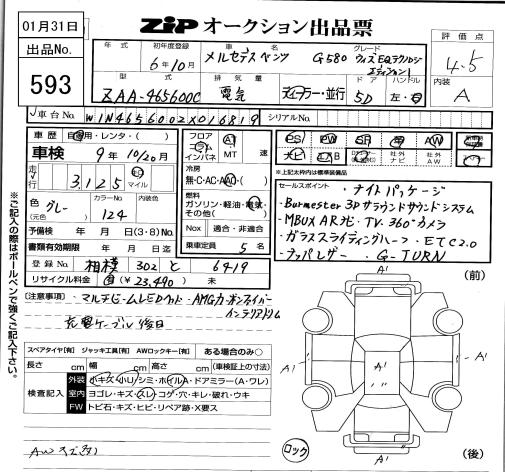 01月31日
出品No.
593
ZIP オークション出品票
年式 初年度登録 車名 グレード 評価点
6年10月 メルセデスベンツ G580 ウィズEQテクノロジー エディション1 4.5
型式 排気量 ドア ハンドル 内装
ZAA-465600C 電気 ディーラー・並行 5D 左・右 A
車台No. W1N4656002X016819 シリアルNo.
車歴 自家用・レンタ・( )
車検 9年10/20月
走行 3,125 km マイル
色 グレー (元色) カラーNo. 124 内装色
予備検 年 月 日(3・8)No.
書類有効期限 年 月 日迄
登録No. 相模 302 と 6419
リサイクル料金 有(¥23,490) 未
フロア コラム インパネ AT MT 速
冷房 無・C・AC・AAC・( )
燃料 ガソリン・軽油・電気 その他( )
Nox 適合・非適合
乗車定員 5名
PS PW SR AW
ナビ 社外ナビ 社外AW
※上記太枠内は標準装備品
セールスポイント
・ナイトパッケージ
・Burmester 3Dサラウンドサウンドシステム
・MBUX ARナビ・TV・360°カメラ
・ガラススライディングルーフ・ETC2.0
・ナッパレザー・G-TURN
注意事項・マルチビームLEDヘッド・AMGカーボンファイバー
インテリアトリム
充電ケーブル後日
スペアタイヤ[有] ジャッキ工具[有] AWロックキー[有] ある場合のみ○
長さ cm 幅 cm 高さ cm (車検証上の寸法)
検査記入
外装 小キズ・小凹・シミ・ホイルA・ドアミラー(A・ワレ)
室内 ヨゴレ・キズ・スレ・コゲ・穴・キレ・破れ・ウキ
FW トビ石・キズ・ヒビ・リペア跡・X要ス
ロック
(前)
A1
A1
A1
A1
A1
(後)
※ご記入の際はボールペンで強くご記入下さい。